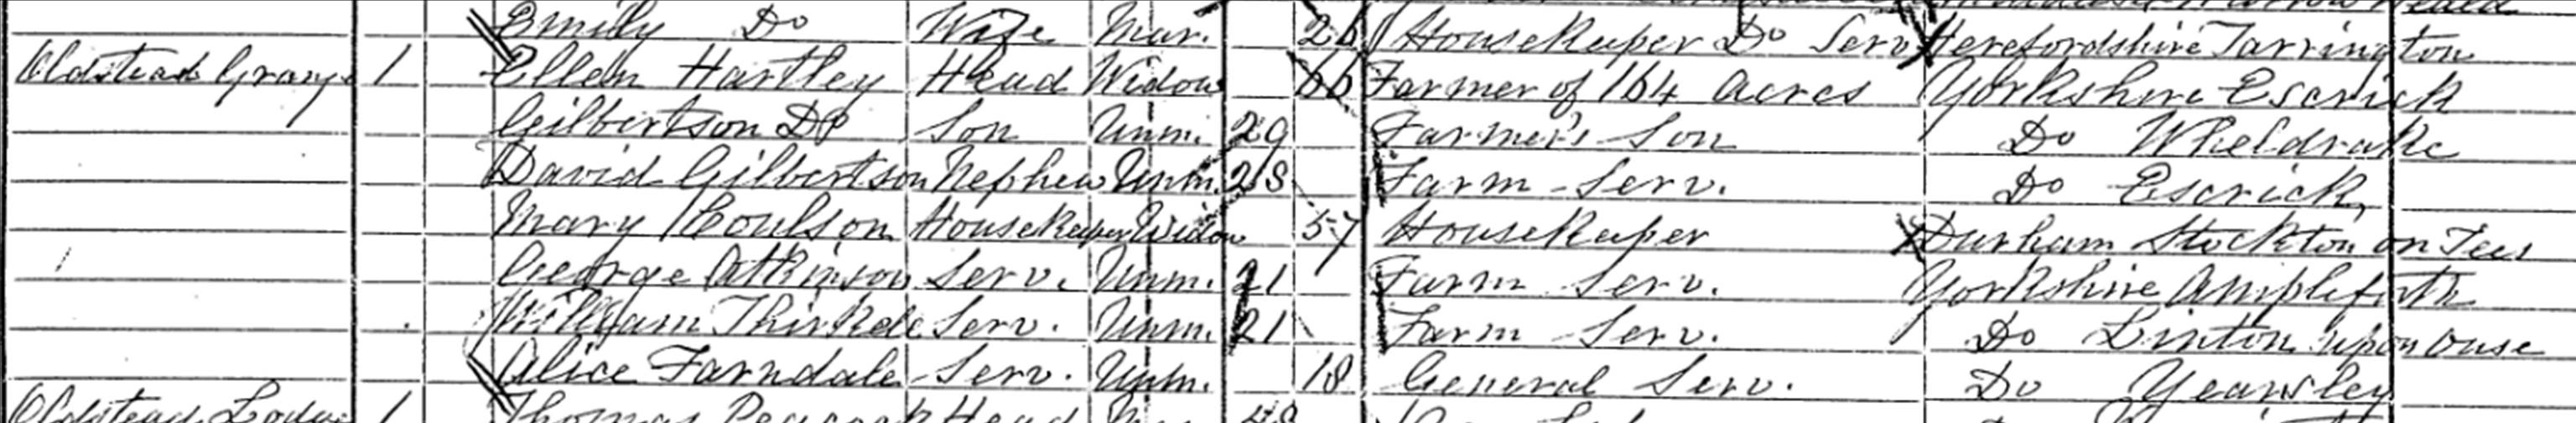 Emily Do Wife Mar. 26 Housekeeper Do Serv Herefordshire Tarrington
Oldstead Grange 1 Ellen Hartley Head Widow 66 Farmer of 164 Acres Yorkshire Escrick
Gilbertson Do Son Unm. 29 Farmer's Son Do Wheldrake
David Gilbertson Nephew Unm. 28 Farm Serv. Do Escrick
Mary Coulson Housekeeper Widow 57 Housekeeper Durham Stockton on Tees
George Atkinson Serv. Unm. 21 Farm Serv. Yorkshire Ampleforth
William Thirkele Serv. Unm. 21 Farm Serv. Do Linton upon Ouse
Alice Farndale Serv. Unm. 18 General Serv. Do Yearsley
Oldstead Lodge 1 Thomas Peacock Head 48